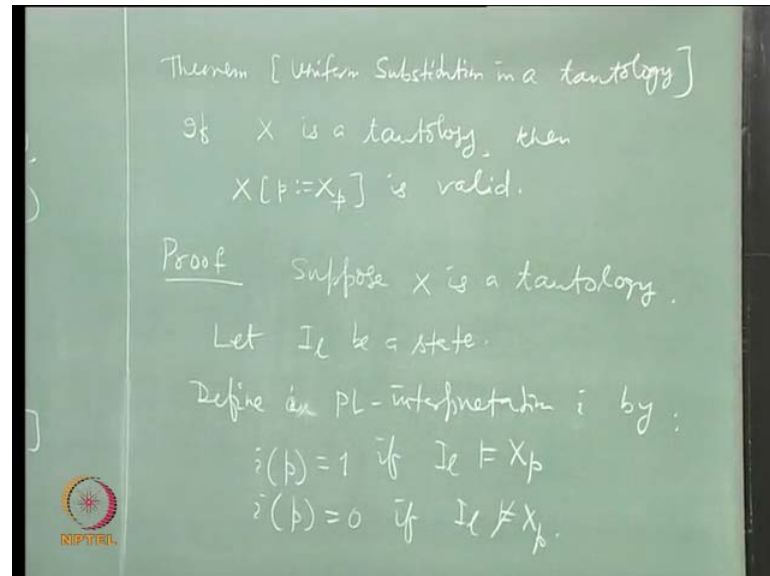 Theorem [Uniform Substitution in a tautology]
If X is a tautology, then
X[p:=X_p] is valid.
Proof Suppose X is a tautology.
Let I_l be a state.
Define an PL-interpretation i by:
i(p) = 1 if I_l ⊨ X_p
i(p) = 0 if I_l ⊭ X_p.
)
]
NPTEL